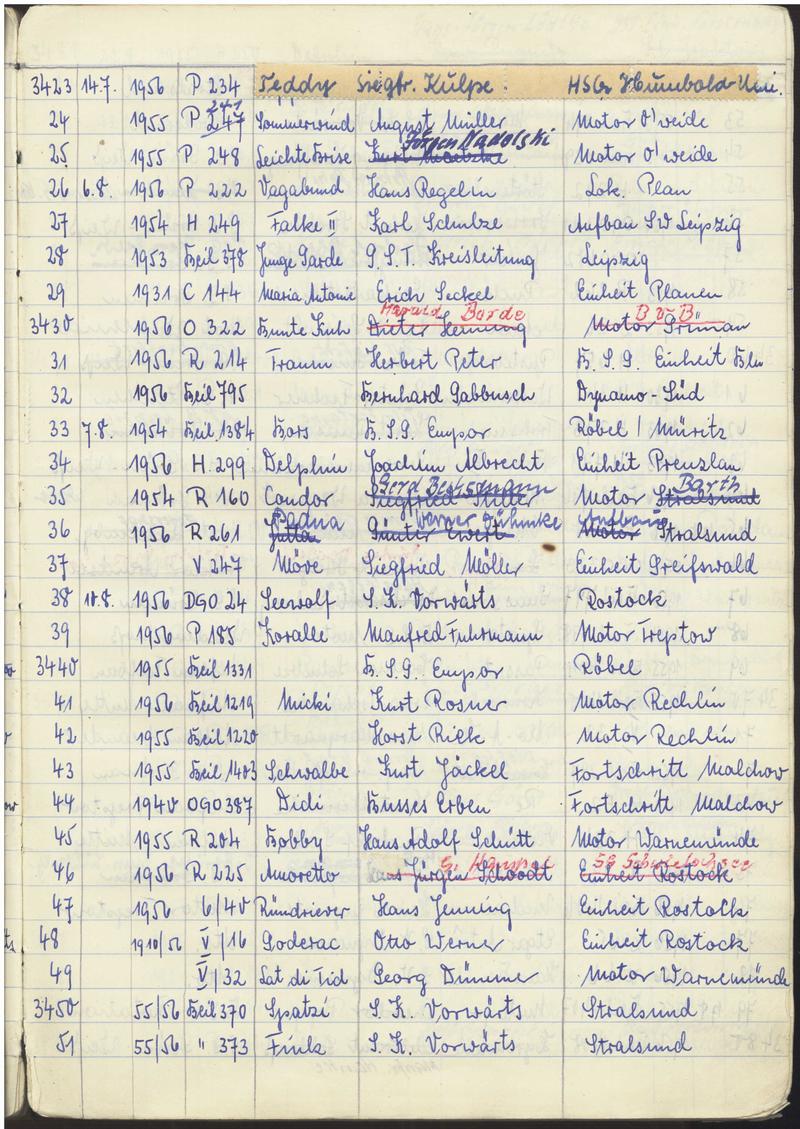 3423 14.7. 1956 P 234 Teddy Siegfr. Kulpe. HSG Humbold-Uni.
241
24 1955 P 247 Sommerwind August Müller Motor O'weide
Jürgen Nadolski
25 1955 P 248 Leichte Brise Kurt Motor O'weide
26 6.8. 1956 P 222 Vagabund Hans Regelin Lok. Plan
27 1954 H 249 Falke II Karl Schulze Aufbau SW Leipzig
28 1953 Beil 378 Junge Garde G.S.T. Kreisleitung Leipzig
29 1931 C 144 Maria Antonie Erich Seckel Einheit Planen
Harald Borde B d B
3430 1956 O 322 Bunte Kuh Dieter Henning Motor Grünau
31 1956 R 214 Traum Herbert Peter B.S.G. Einheit Bln
32 1956 Beil 795 Bernhard Gabbusch Dynamo-Süd
33 7.8. 1954 Beil 1384 Bors B.S.G. Empor Röbel / Müritz
34 1956 H 299 Delphin Joachim Albrecht Einheit Prenzlau
Gerd Barth
35 1954 R 160 Condor Siegfried Motor Stralsund
Padua Werner Aufbau
36 1956 R 261 Jutta Günter Ewert Motor Stralsund
37 V 247 Möve Siegfried Möller Einheit Greifswald
38 10.8. 1956 DGO 24 Seewolf S.K. Vorwärts Rostock
39 1956 P 185 Koralle Manfred Fuhrmann Motor Treptow
3440 1955 Beil 1331 B.S.G. Empor Röbel
41 1956 Beil 1219 Micki Kurt Rosner Motor Rechlin
42 1955 Beil 1220 Horst Riek Motor Rechlin
43 1955 Beil 1403 Schwalbe Kurt Jäckel Fortschritt Malchow
44 1940 OGO 387 Didi Busses Erben Fortschritt Malchow
45 1955 R 204 Bobby Hans Adolf Schütt Motor Warnemünde
46 1956 R 225 Amoretto Jürgen Schoodt Einheit Rostock
47 1956 6/40 Ründriever Hans Jenning Einheit Rostock
48 1910/56 V/16 Goderac Otto Werner Einheit Rostock
49 V/32 Lat di Tid Georg Dümmer Motor Warnemünde
3450 55/56 Beil 370 Spatzi S.K. Vorwärts Stralsund
51 55/56 " 373 Fink S.K. Vorwärts Stralsund